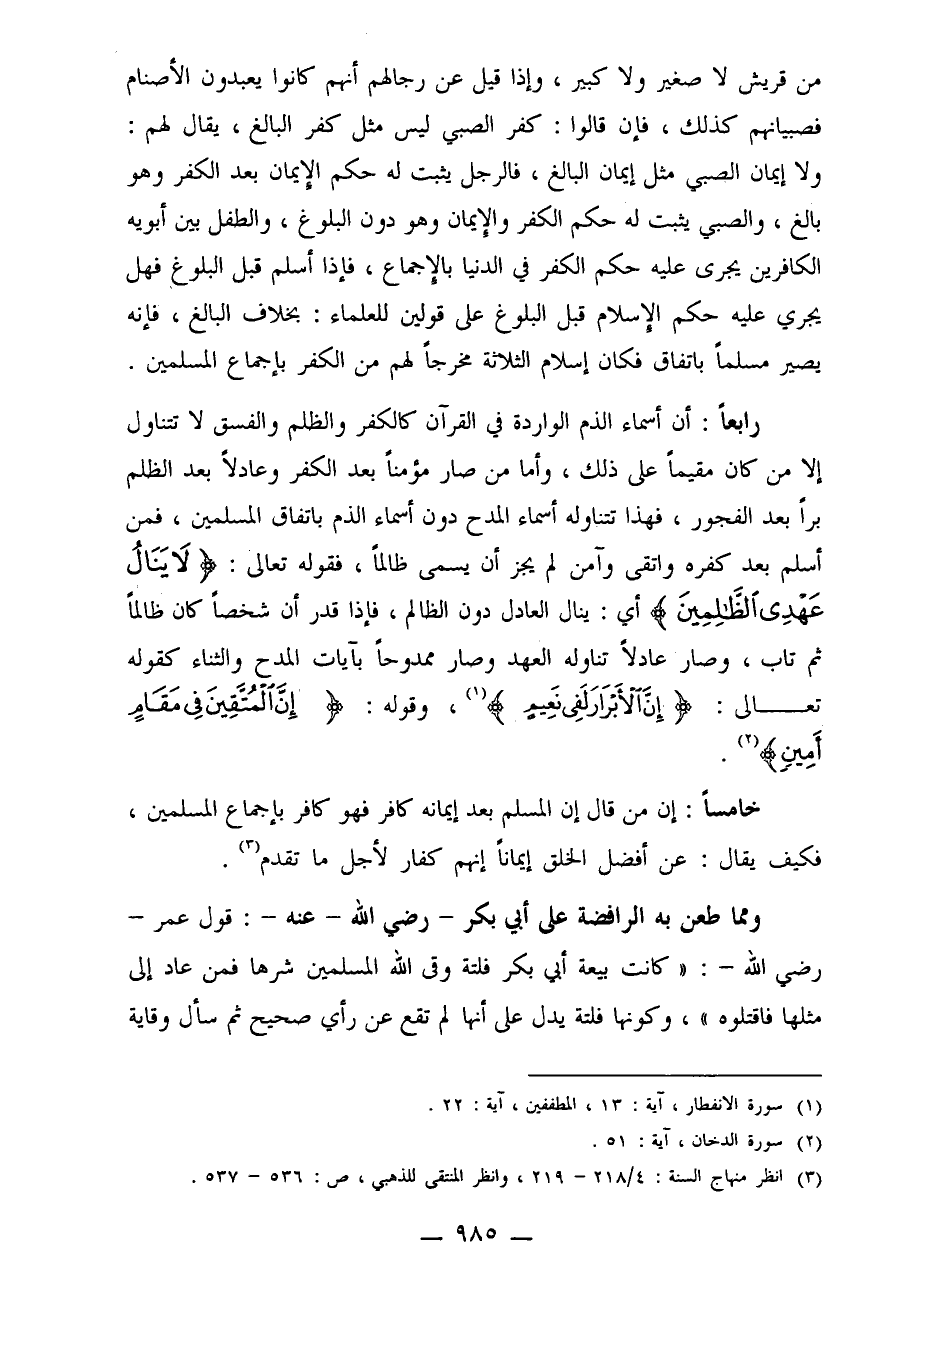 من قريش لا صغير ولا كبير ، وإذا قيل عن رجالهم أنهم كانوا يعبدون الأصنام
فصبيانهم كذلك ، فإن قالوا : كفر الصبي ليس مثل كفر البالغ ، يقال لهم :
ولا إيمان الصبي مثل إيمان البالغ ، فالرجل يثبت له حكم الإيمان بعد الكفر وهو
بالغ ، والصبي يثبت له حكم الكفر والإيمان وهو دون البلوغ ، والطفل بين أبويه
الكافرين يجرى عليه حكم الكفر في الدنيا بالإجماع ، فإذا أسلم قبل البلوغ فهل
يجري عليه حكم الإسلام قبل البلوغ على قولين للعلماء : بخلاف البالغ ، فإنه
يصير مسلماً باتفاق فكان إسلام الثلاثة مخرجاً لهم من الكفر بإجماع المسلمين .
رابعاً : أن أسماء الذم الواردة في القرآن كالكفر والظلم والفسق لا تتناول
إلا من كان مقيماً على ذلك ، وأما من صار مؤمناً بعد الكفر وعادلاً بعد الظلم
براً بعد الفجور ، فهذا تتناوله أسماء المدح دون أسماء الذم باتفاق المسلمين ، فمن
أسلم بعد كفره واتقى وآمن لم يجز أن يسمى ظالماً ، فقوله تعالى : ﴿ لَا يَنَالُ
عَهْدِى ٱلظَّٰلِمِينَ ﴾ أي : ينال العادل دون الظالم ، فإذا قدر أن شخصاً كان ظالماً
ثم تاب ، وصار عادلاً تناوله العهد وصار ممدوحاً بآيات المدح والثناء كقوله
تعـــــالى : ﴿ إِنَّ ٱلْأَبْرَارَ لَفِى نَعِيمٍ ﴾(١) ، وقوله : ﴿ إِنَّ ٱلْمُتَّقِينَ فِى مَقَامٍ
أَمِينٍ ﴾(٢) .
خامساً : إن من قال إن المسلم بعد إيمانه كافر فهو كافر بإجماع المسلمين ،
فكيف يقال : عن أفضل الخلق إيماناً إنهم كفار لأجل ما تقدم(٣) .
ومما طعن به الرافضة على أبي بكر – رضي الله – عنه – : قول عمر –
رضي الله – : « كانت بيعة أبي بكر فلتة وقى الله المسلمين شرها فمن عاد إلى
مثلها فاقتلوه » ، وكونها فلتة يدل على أنها لم تقع عن رأي صحيح ثم سأل وقاية
(١) سورة الانفطار ، آية : ١٣ ، المطففين ، آية : ٢٢ .
(٢) سورة الدخان ، آية : ٥١ .
(٣) انظر منهاج السنة : ٢١٨/٤ – ٢١٩ ، وانظر المنتقى للذهبي ، ص : ٥٣٦ – ٥٣٧ .
— ٩٨٥ —